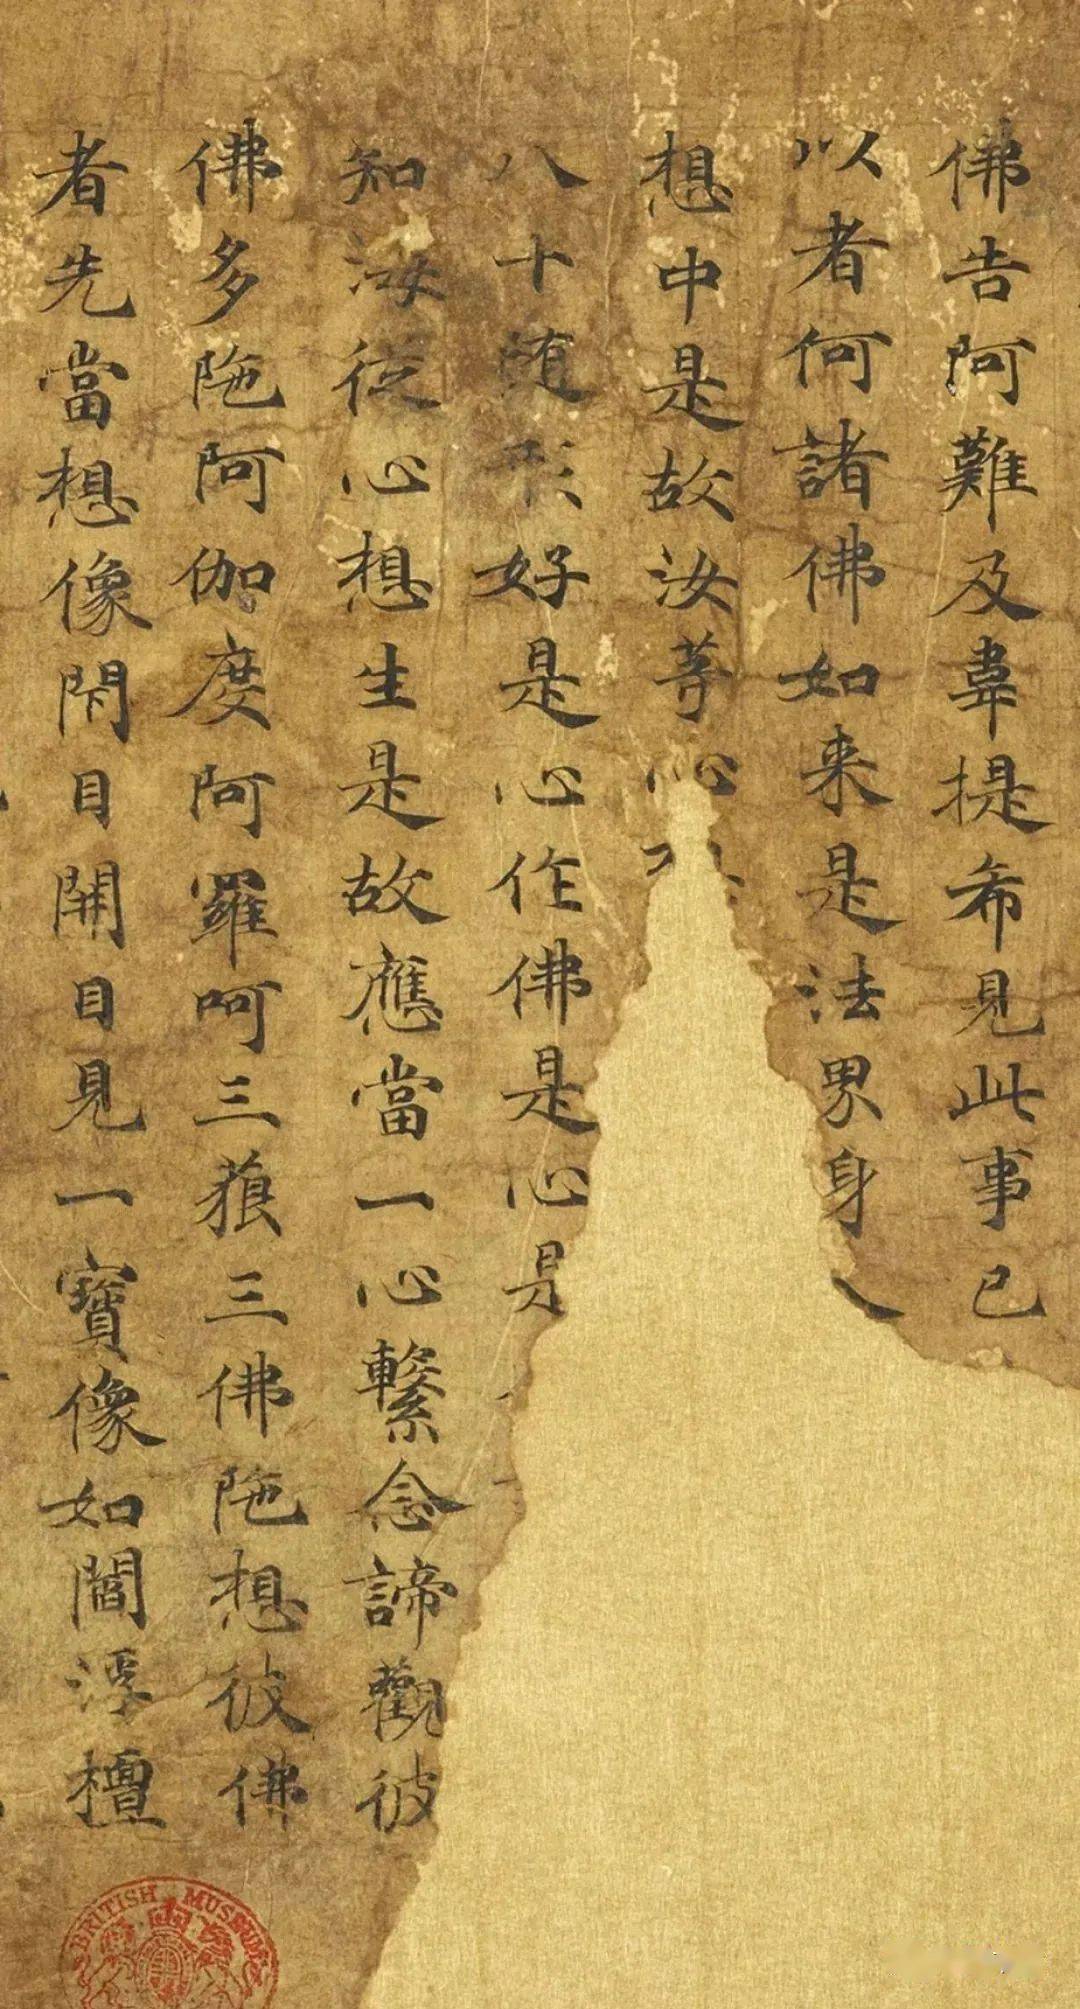 佛告阿難及韋提希見此事已
以者何諸佛如来是法界身
想中是故汝等心想
八十随形好是心作佛是心是
知海從心想生是故應當一心繫念諦觀彼
佛多陁阿伽度阿羅呵三藐三佛陁想彼佛
者先當想像閇目開目見一寶像如閻浮檀
BRITISH MUSEUM